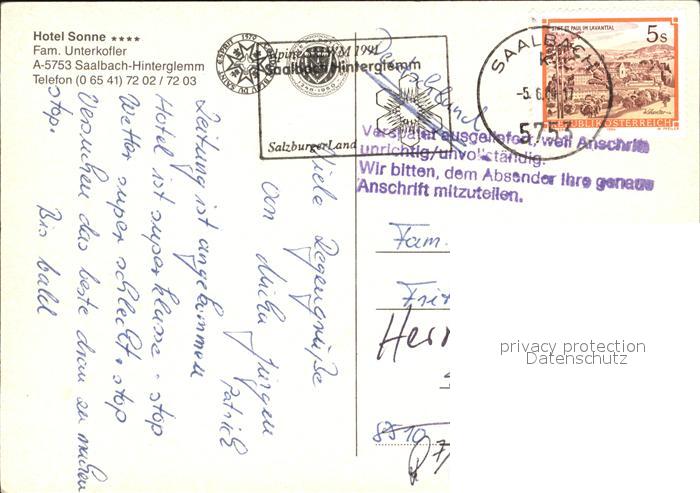 Hotel Sonne ★★★★
Fam. Unterkofler
A-5753 Saalbach-Hinterglemm
Telefon (0 65 41) 72 02 / 72 03
Alpine SKI WM 1991
Saalbach Hinterglemm
SalzburgerLand
SAALBACH
-5.6.
5753
STIFT ST. PAUL IM LAVANTTAL
5s
REPUBLIK ÖSTERREICH
Deutschland
Verspätet ausgeliefert, weil Anschrift
unrichtig/unvollständig.
Wir bitten, dem Absender Ihre genaue
Anschrift mitzuteilen.
Viele Regengrüße
von
Jürgen
Patrick
Zeitung ist angekommen
Hotel ist superklasse - stop
Wetter super schlecht - stop
Versuchen das beste drau zu machen
stop.
Bis bald
Fam.
Herr
8510
privacy protection
Datenschutz